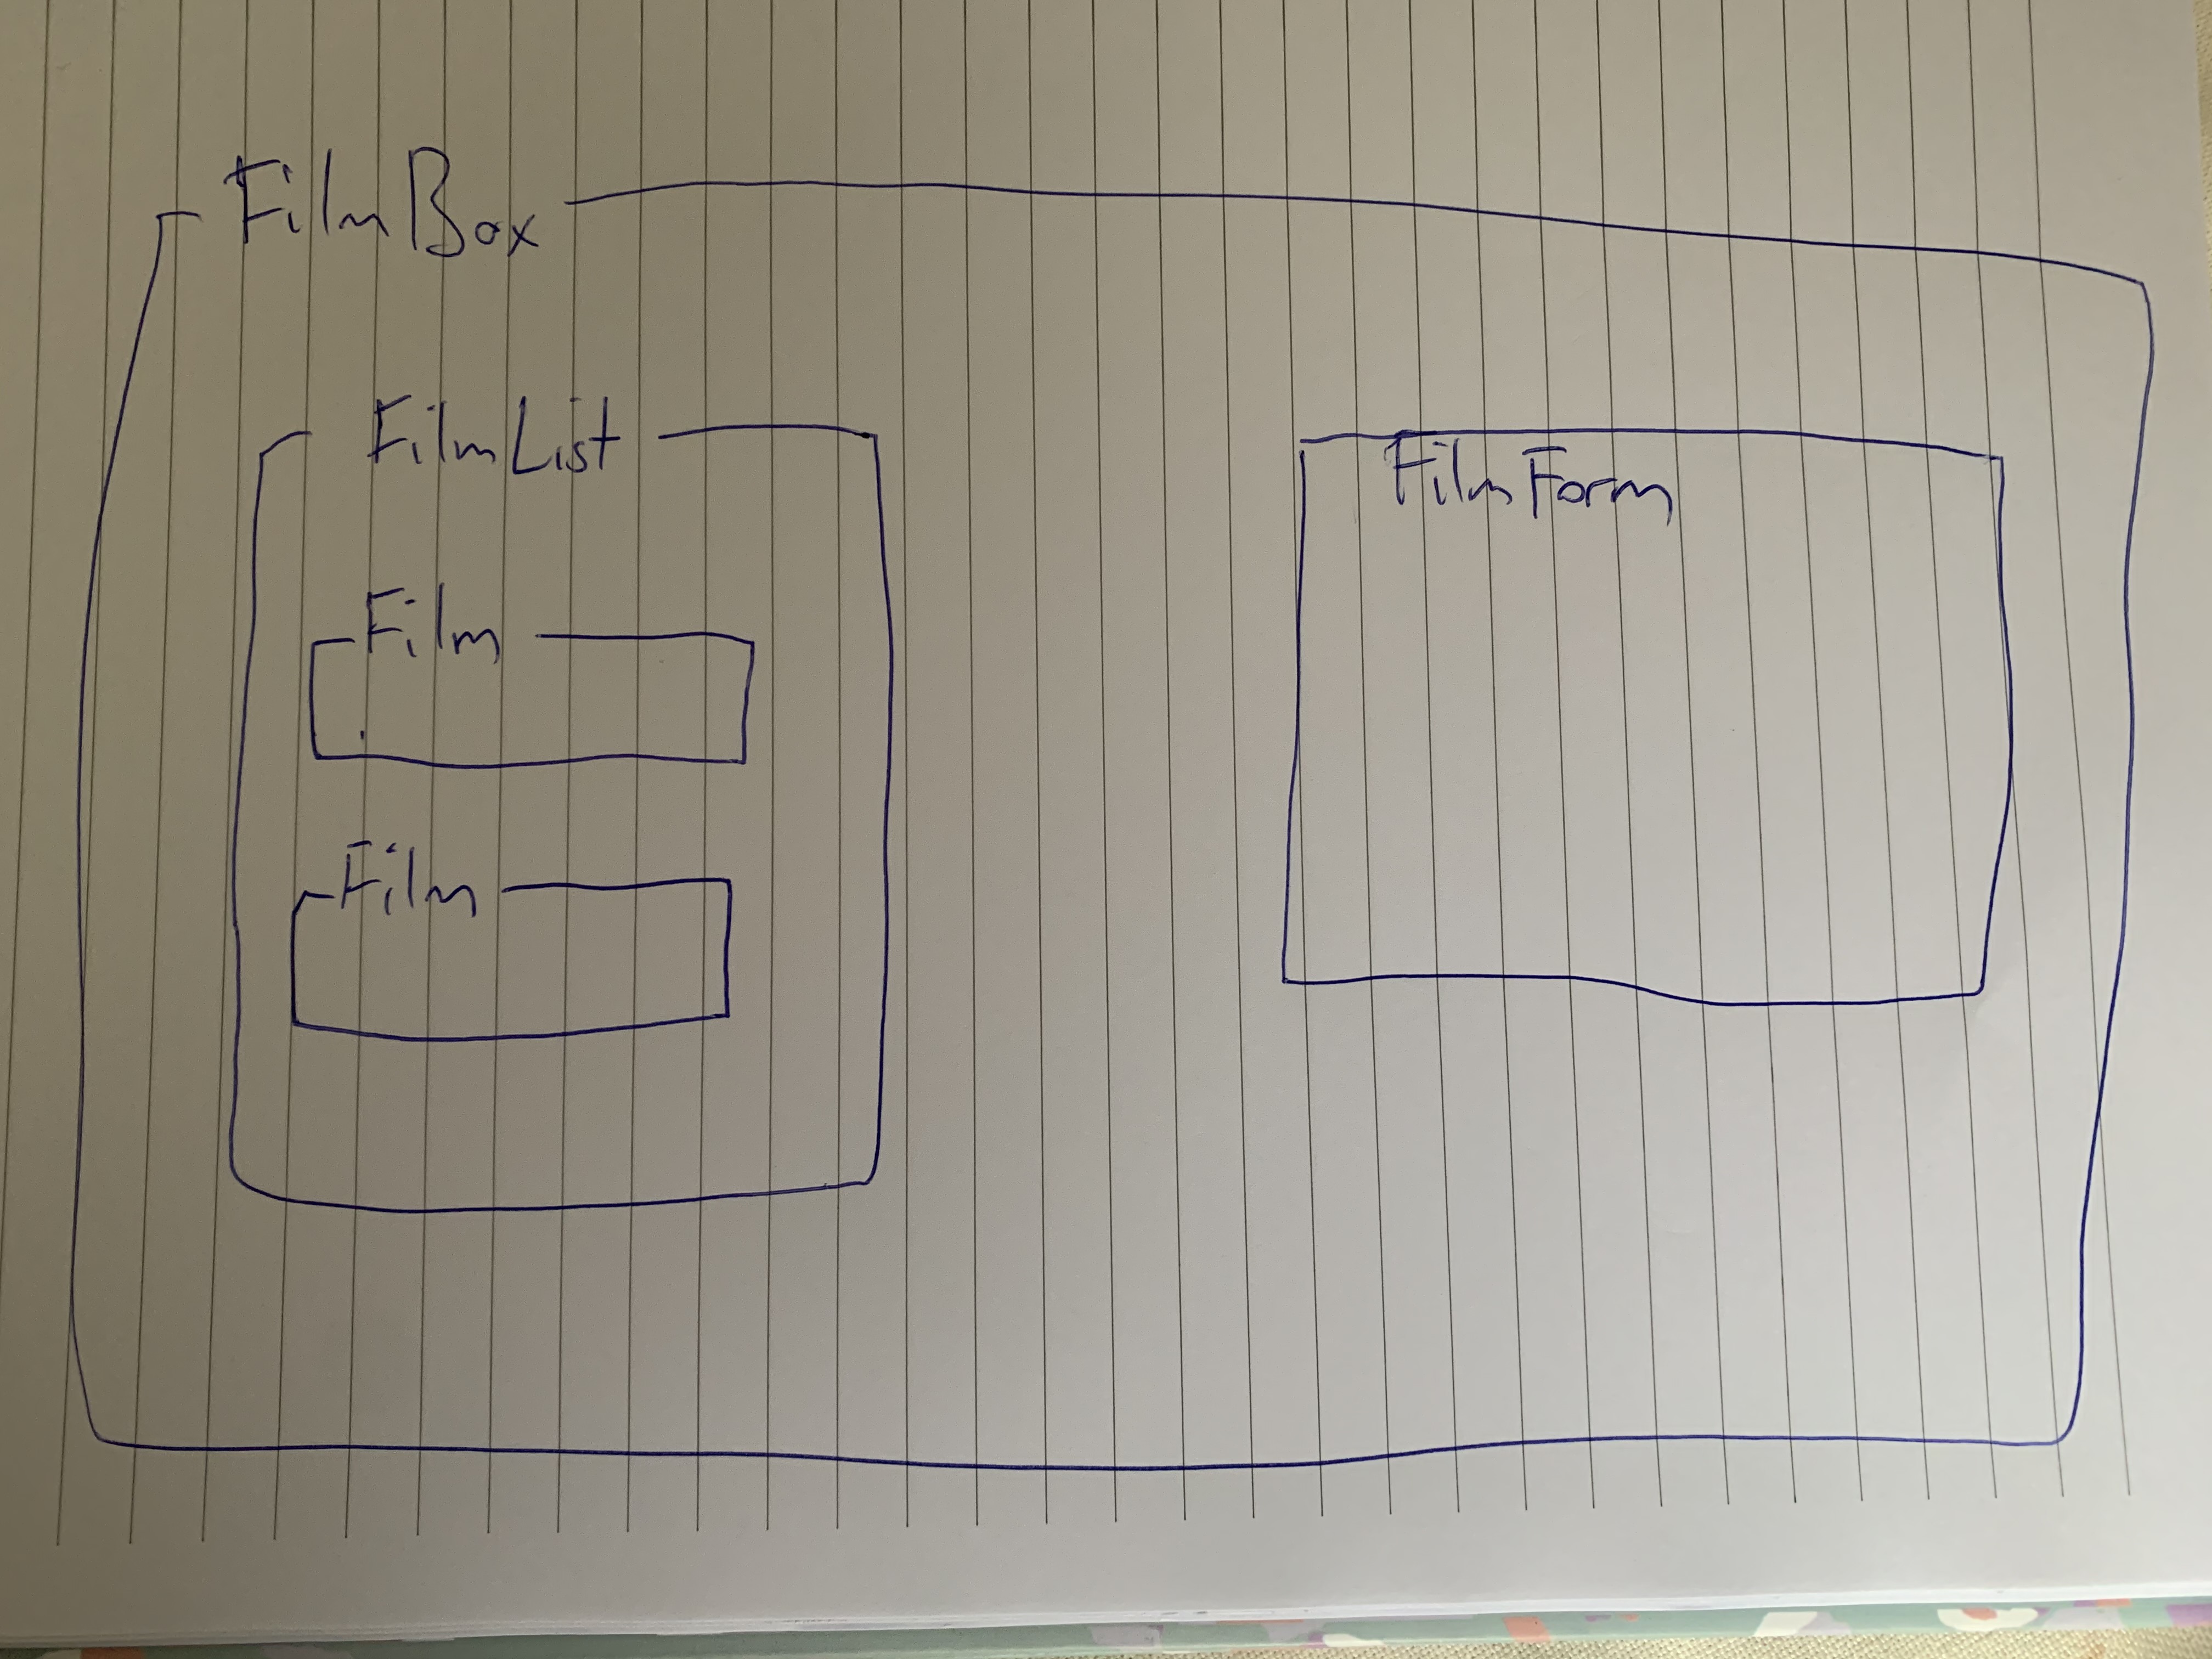 FilmBox
FilmList
Film
Film
FilmForm